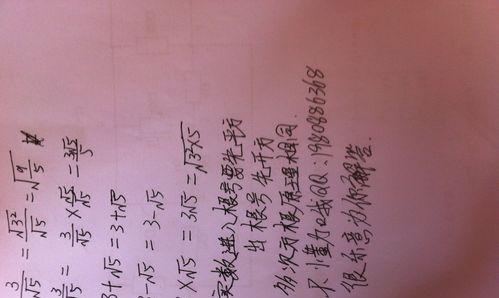 3/√5 = √3²/√5 = √(9/5)
3/√5 = 3/√5 × √5/√5 = 3√5/5
3+√5 = 3+√5
3-√5 = 3-√5
3×√5 = 3√5 = √(3²×5)
实数进入根号要先平方
出根号先开方
多次方根原理相同.
不懂加我QQ:1980886368
很乐意为你解答.